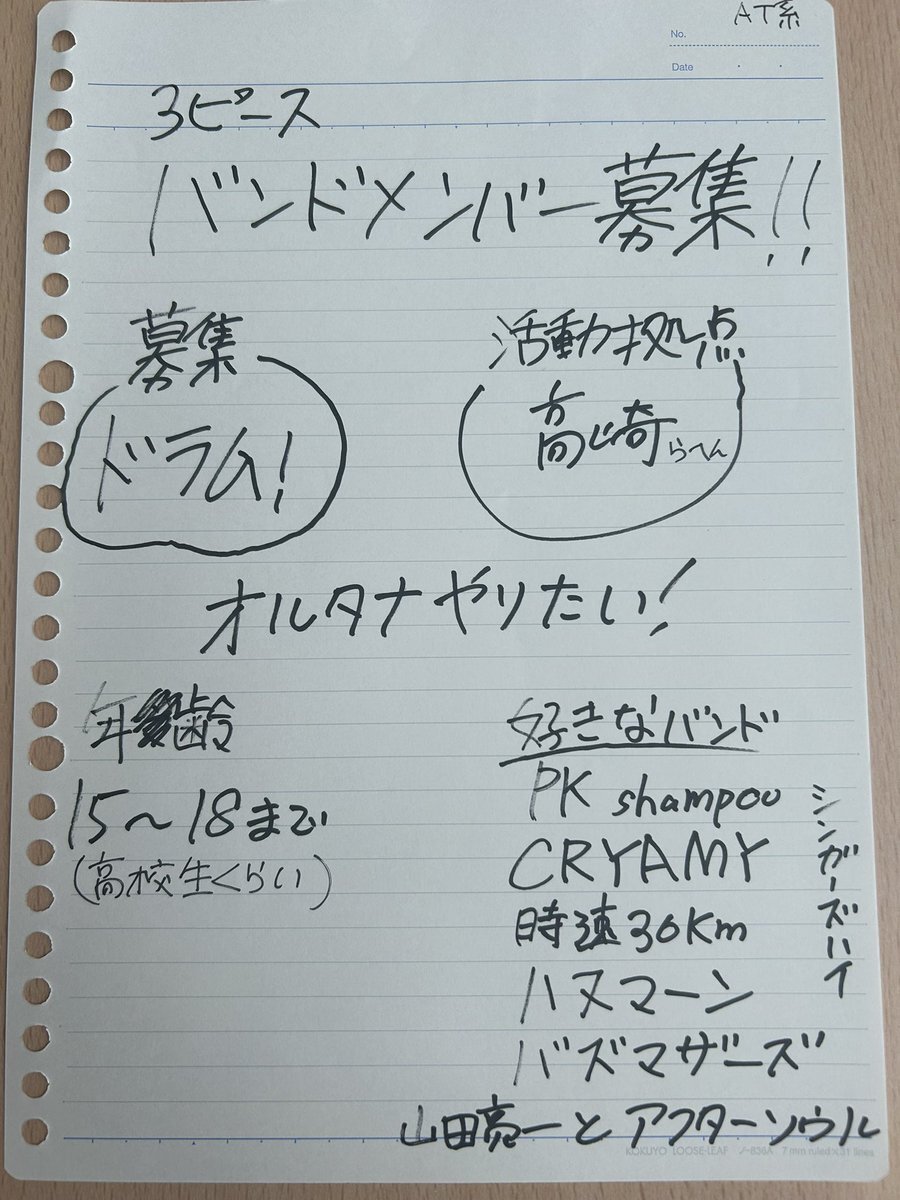 AT系
No.
Date
3ピース
バンドメンバー募集!!
募集
ドラム!
活動拠点
高崎らへん
オルタナやりたい!
年齢
15〜18まで
(高校生くらい)
好きなバンド
PK shampoo
CRYAMY
時速30Km
ハヌマーン
バズマザーズ
山田亮一とアフターソウル
シンガーズハイ
KOKUYO LOOSE-LEAF ノ-836A 7 mm ruled×31 lines